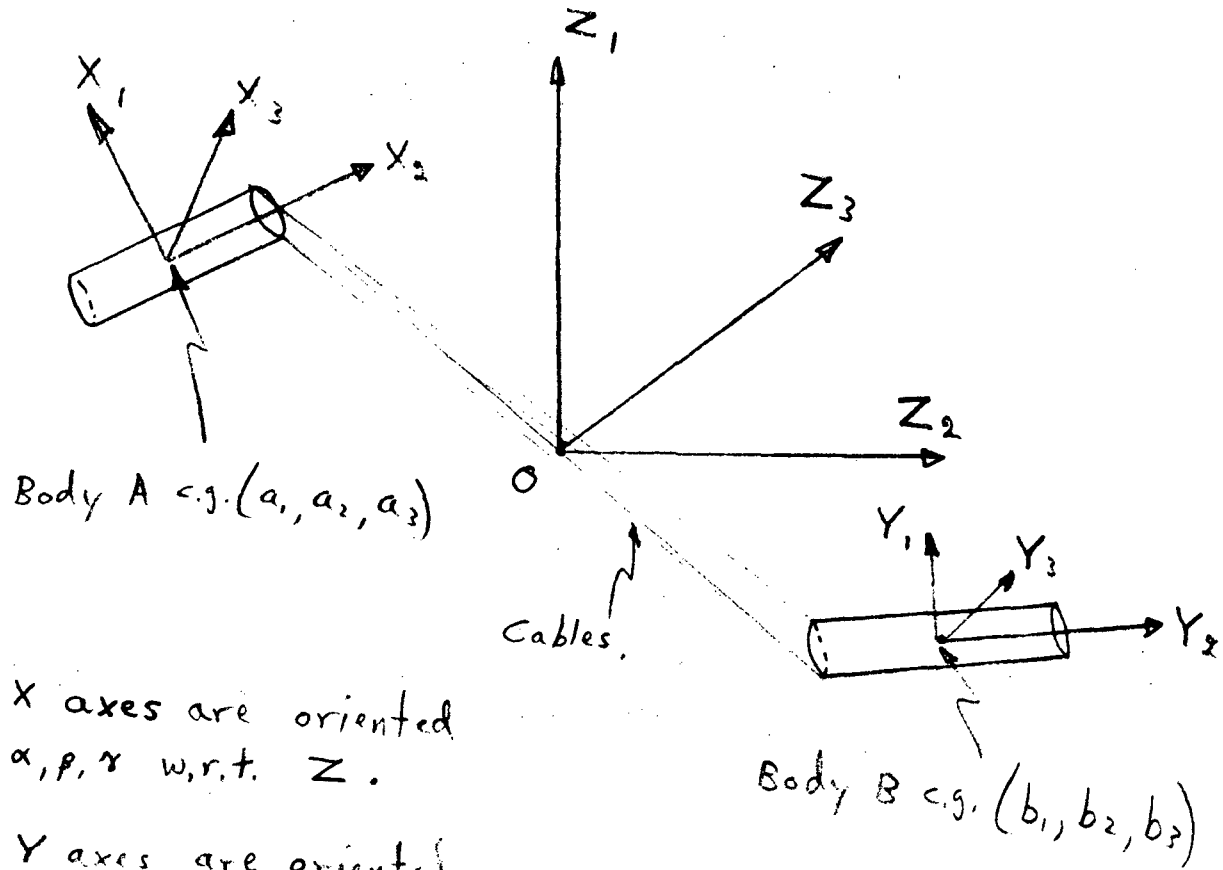 Z₁
X₁
X₃
X₂
Z₃
Z₂
O
Body A c.g. (a₁, a₂, a₃)
Y₁
Y₃
Y₂
Cables.
X axes are oriented
α, β, γ w.r.t. Z.
Body B c.g. (b₁, b₂, b₃)
Y axes are oriented